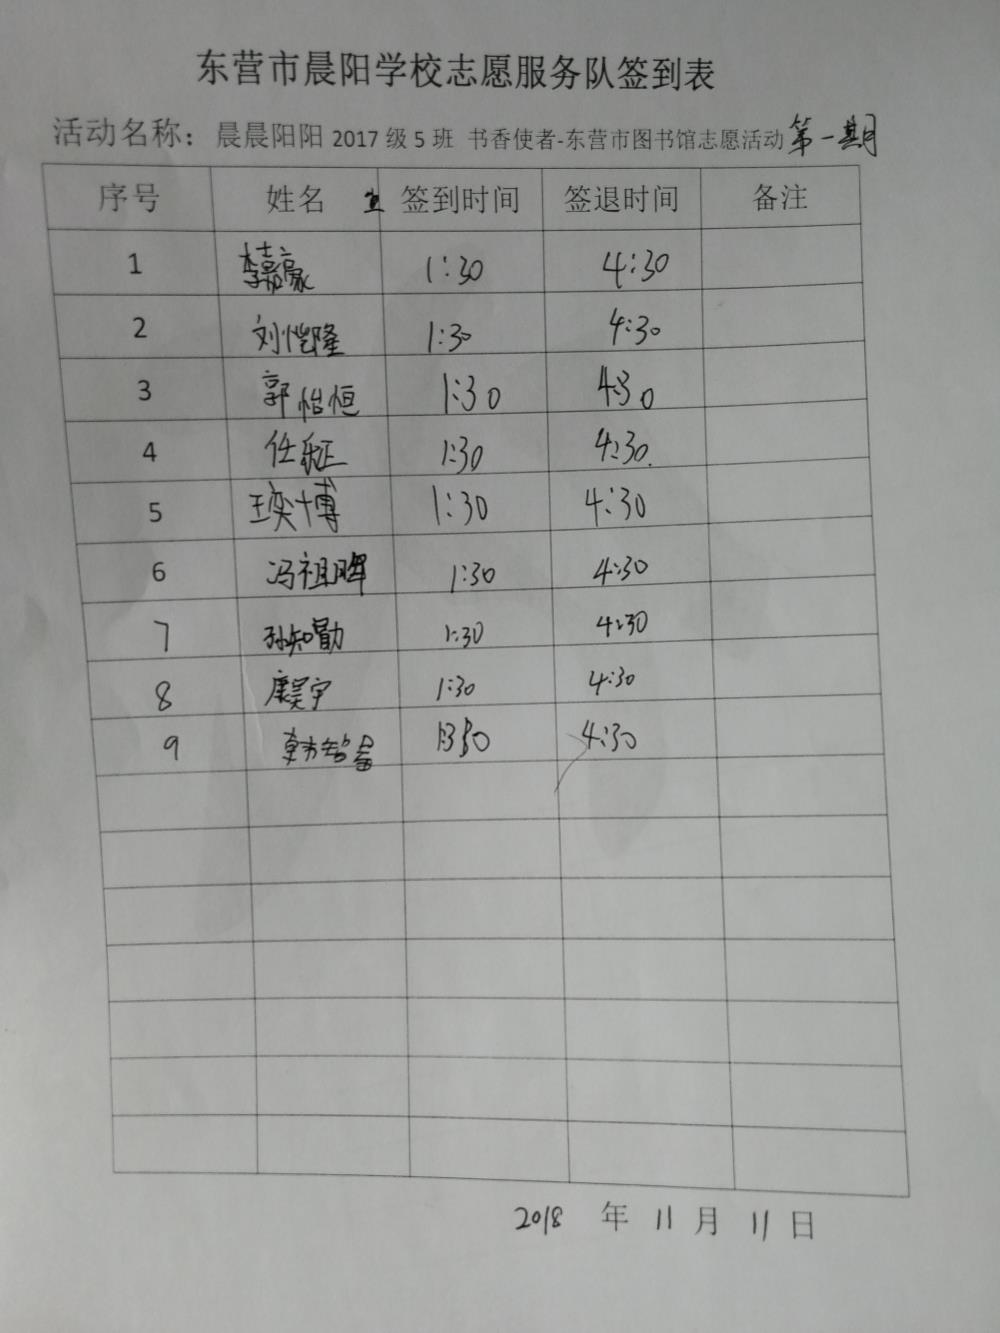 东营市晨阳学校志愿服务队签到表
活动名称：晨晨阳阳 2017 级 5 班 书香使者-东营市图书馆志愿活动 第一期
序号 姓名 签到时间 签退时间 备注
1 李嘉豪 1:30 4:30
2 刘恺隆 1:30 4:30
3 郭怡恒 1:30 4:30
4 任 1:30 4:30
5 王奕博 1:30 4:30
6 冯祖晖 1:30 4:30
7 孙知勖 1:30 4:30
8 昊宇 1:30 4:30
9 4:30
2018 年 11 月 11 日